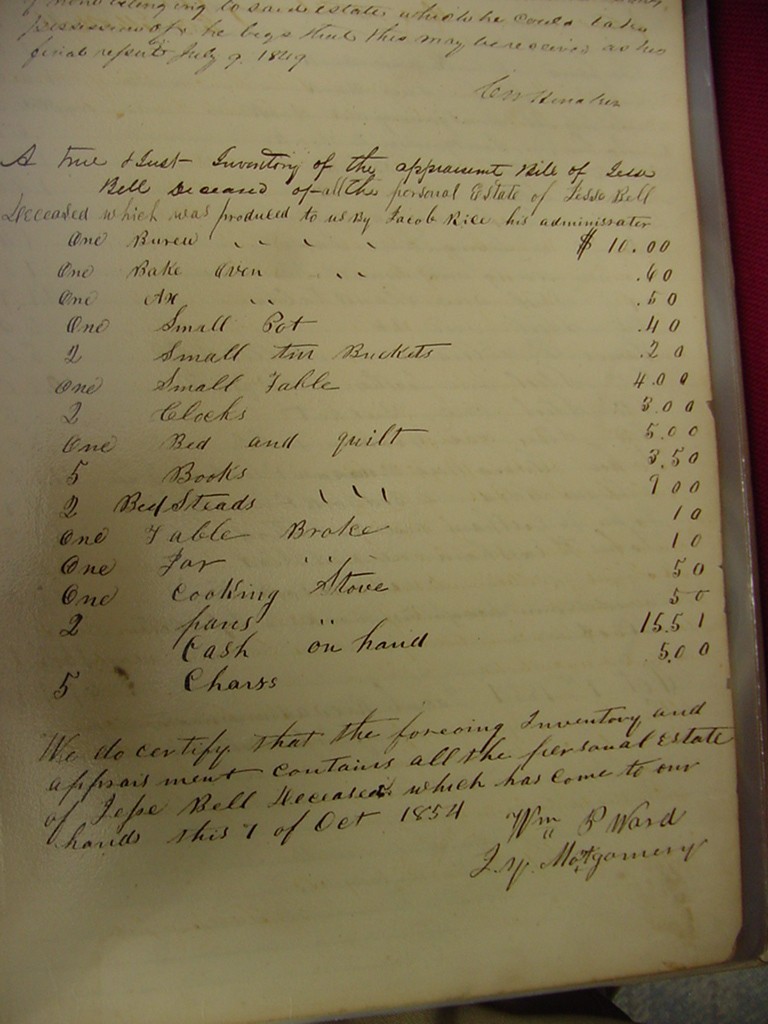 belonging to said estate which he could take
possession of he begs that this may be received as his
final report July 9. 1849
A true & Just Inventory of the appraisment Bill of Jesse
Bell Deceased of all the personal Estate of Jesse Bell
Deceased which was produced to us By Jacob Rice his administrater
One Bureu " " " " $ 10.00
One Bake Oven " " .60
One Ax " .50
One Small Pot .40
2 Small tin Buckets .20
One Small Table 4.00
2 Clocks 3.00
One Bed and quilt 5.00
5 Books 3.50
2 BedSteads " " " 9 00
One Table Broke 10
One Jar " " 10
One Cooking Stove 50
2 pans " 50
Cash on hand 15.51
5 Chairs 5.00
We do certify that the foregoing Inventory and
appraisment contains all the personal Estate
of Jesse Bell Deceased which has come to our
hands this 7 of Oct 1854
Wm P Ward
J. Y. Montgomery